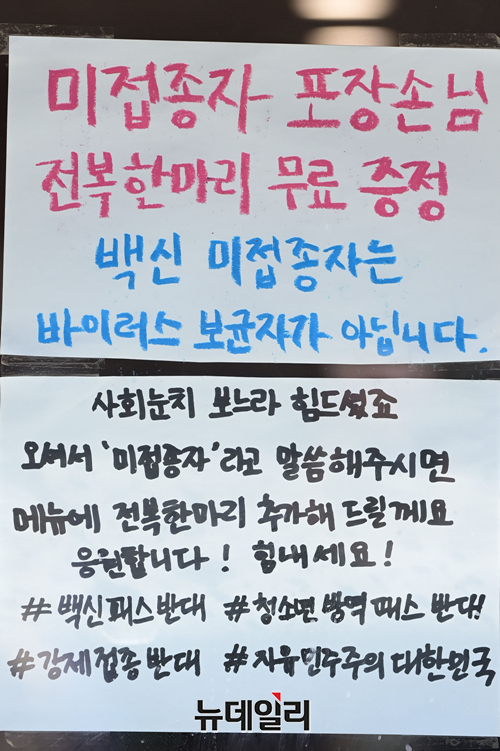 미접종자 포장손님
전복한마리 무료 증정
백신 미접종자는
바이러스 보균자가 아닙니다.
사회눈치 보느라 힘드셨죠
오셔서 '미접종자'라고 말씀해주시면
메뉴에 전복한마리 추가해 드릴께요
응원합니다! 힘내세요!
#백신패스반대 #청소년 방역패스 반대!
#강제접종반대 #자유민주주의대한민국
뉴데일리